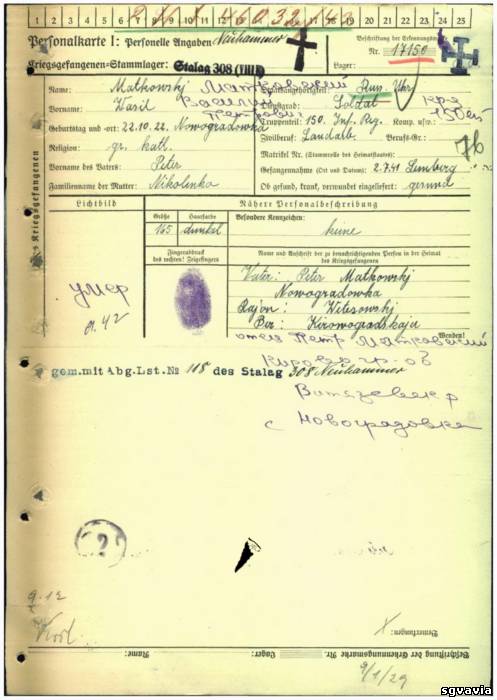 1 2 3 4 5 6 7 8 9 10 11 12 13 14 15 16 17 18 19 20 21 22 23 24 25
Personalkarte I: Personelle Angaben Neuhammer
Beschriftung der Erkennungsmarke
Nr. 17150
Kriegsgefangenen-Stammlager: Stalag 308 (VIII E)
Lager:
Name: Matkowskj Матковский
Staatsangehörigkeit: Russ. Ukr.
Vorname: Wasil Василий
Dienstgrad: Soldat
Петрович
Truppenteil: 150. Inf. Rg. Komp. usw.:
Geburtstag und -ort: 22.10.22. Nowogradowka
Zivilberuf: Landarb. Berufs-Gr.:
76
Religion: gr. kath.
Matrikel Nr. (Stammrolle des Heimatstaates):
Vorname des Vaters: Peter
Gefangennahme (Ort und Datum): 2.7.41 Lemberg
Familienname der Mutter: Nikolenko
Ob gesund, krank, verwundet eingeliefert: gesund
des Kriegsgefangenen
Lichtbild
Nähere Personalbeschreibung
Größe Haarfarbe Besondere Kennzeichen:
165 dunkel keine
Fingerabdruck des rechten! Zeigefingers
Name und Anschrift der zu benachrichtigenden Person in der Heimat des Kriegsgefangenen
Vater: Peter Matkowskj
Nowogradowka
Rajon: Witesowskj
Bez: Kirowogradskaju
умер
Wenden!
отец Петр Матковский
gem.mit Abg.Lst.№ 118 des Stalag 308 Neuhammer
с Новоградовка
?
Bemerkungen:
Beschriftung der Erkennungsmarke Nr. Lager: Name:
9/1/29
sgvavia